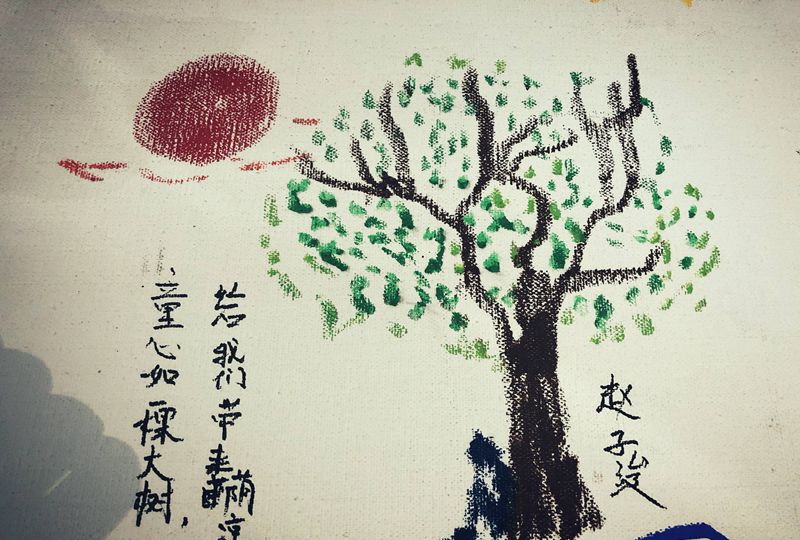 童心如一棵大树，
给我们带来荫凉
赵子